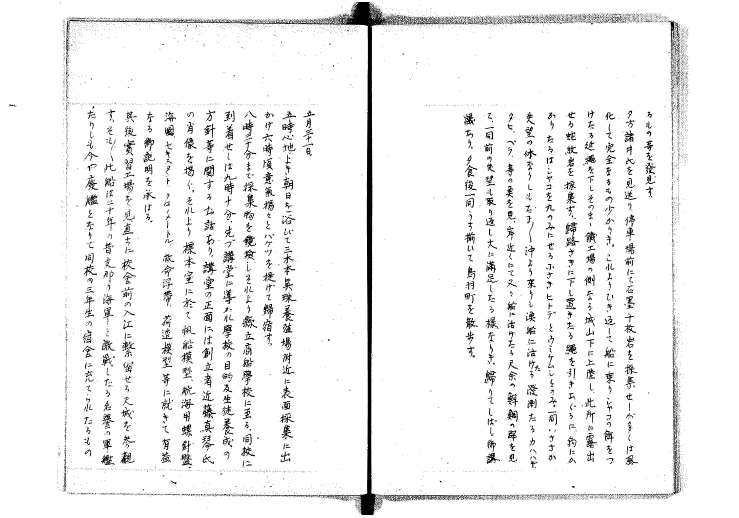 るもの等を發見す。
夕方諸井氏を見送り停車場前にて石墨千枚岩を採集せしが多くは風
化して完全なるもの少かりき。これよりひき返して船に乗りシャコの餌をつ
けたる延繩を下しそのまゝ鐵工場の側なる城山下に上陸し、此所に露出
せる蛇紋岩を採集す。歸路さきに下し置きたる繩を引きあぐるに、釣にか
ゝりたるはシャコを丸のみにせる小さきヒトデとウミケムシとのみ、一同いさゝか
失望の体なりしもたま〳〵沖より來りし漁船に活けたる溌溂たるカハハギ、
タヒ、ベラ、等の美を見、岸近くにて又々船に活けたる尺余の鮮鯛の群を見
て、一同前の失望も取り返し大に滿足したる樣なりき、歸りてしばし御講
議あり、夕食後一同うち揃いて鳥羽町を散歩す。
五月三十一日。
五時心地よき朝日を浴びて三木本眞珠養殖場附近に表面採集に出
かけ六時頃意氣揚々とバケツを提げて歸宿す。
八時三十分まで採集物を鏡檢しそれより縣立商船學校に至る、同校に
到着せしは九時十分、先づ講堂に導かれ學校の目的及生徒養成の
方針等に關する御話あり、講堂の正面には創立者近藤真琴氏
の肖像を掲ぐ、それより標本室に於て帆船模型、航海用螺針盤、
海圖、セキスタント、クロノメートル、救命浮帶、荷造模型等に就きて有益
なる御説明を承はる。
其後實習工場を見直ちに校舎前の入江に繫留せる天城を參觀
す。そも〳〵此船は二十年の昔支那の海軍と激戰したる名譽の軍艦
たりしも今や廢艦となりて同校の三年生の宿舎に充てられたるもの